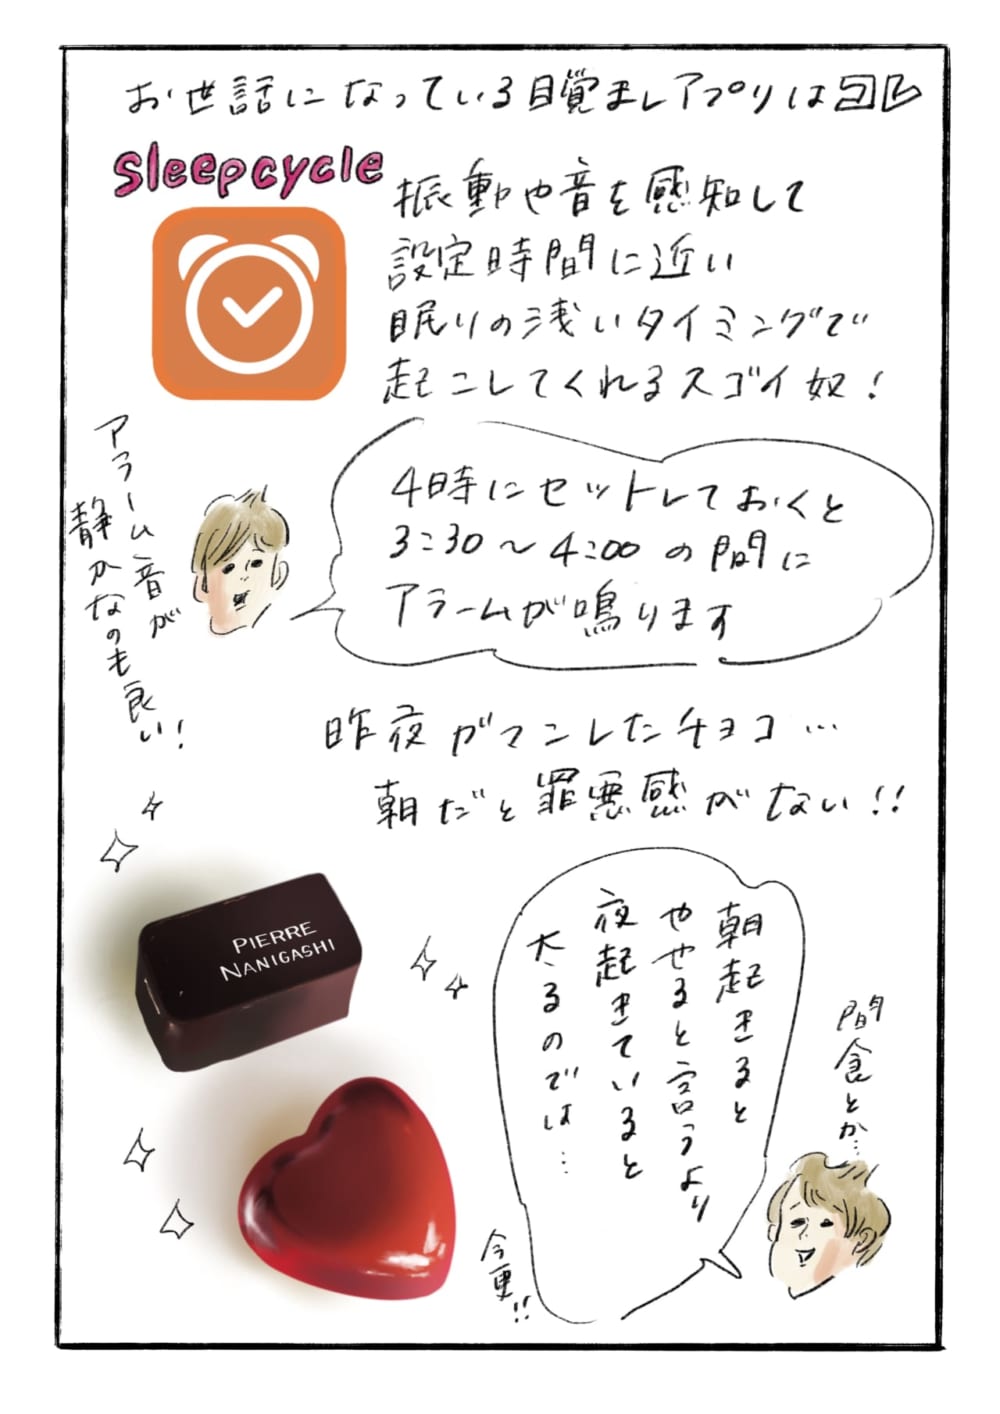 お世話になっている目覚ましアプリはコレ
sleepcycle
振動や音を感知して
設定時間に近い
眠りの浅いタイミングで
起こしてくれるスゴイ奴!
アラーム音が
静かなのも良い!
4時にセットしておくと
3:30〜4:00の間に
アラームが鳴ります
昨夜ガマンしたチョコ…
朝だと罪悪感がない!!
PIERRE
NANIGASHI
朝起きると
やせると言うより
夜起きていると
太るのでは…
間食とか…
今更!!